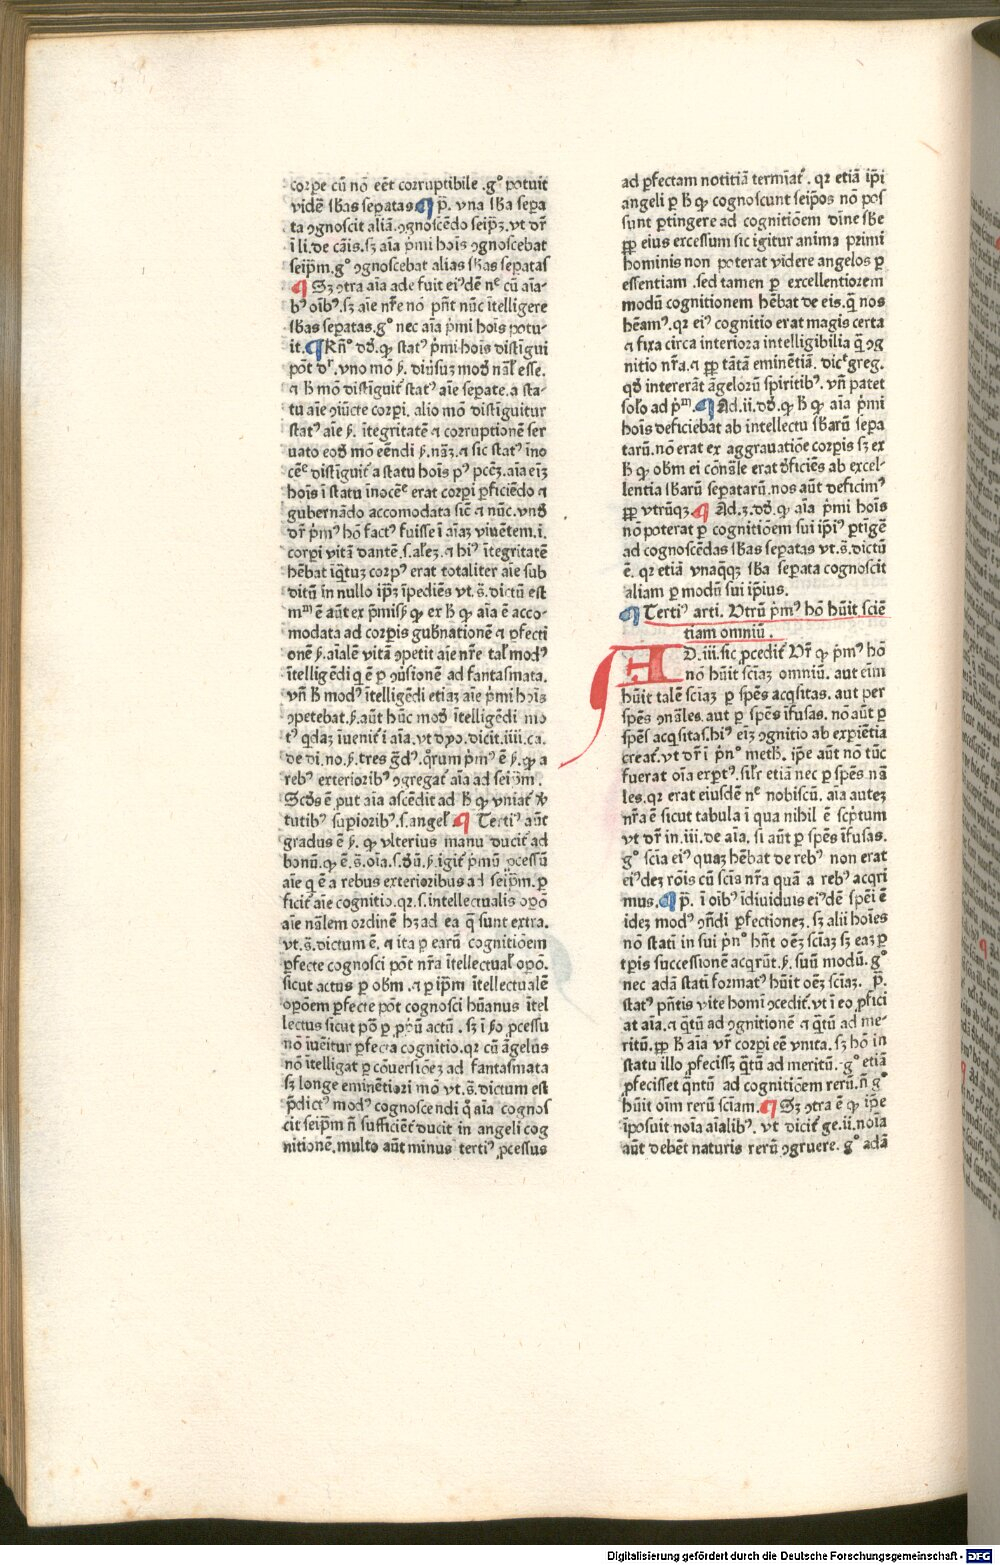 corꝑe cū nō eēt corruptibile .gͦ potuit
vidē sb̄as seꝑatas ¶ p̄. vna sb̄a seꝑa
ta ꝯgnoscit aliā.ꝯgnoscēdo seip̄ꝫ.vt dr̄
ī li.de cāis.sꝫ aīa p̄mi hoīs ꝯgnoscebat
seip̄m.gͦ ꝯgnoscebat alias sb̄as seꝑatas
¶ Sꝫ ꝯtra aīa ade fuit eiꝰdē nᵉ cū aīa-
bꝰ oībꝰ.sꝫ aīe nr̄e nō pn̄t nūc ītelligere
sb̄as seꝑatas.gͦ nec aīa p̄mi hoīs potu-
it. ¶ Rn̄ͦ dō. ꝙ statꝰ p̄mi hoīs distīgui
pōt dr̄. vno mō ẜ. diūsuꝫ modū nāl esse.
⁊ h̄ mō distīguit᷑ statꝰ aīe seꝑate. a sta-
tu aīe ꝯiūcte corꝑi. alio mō distiguitur
statꝰ aīe ẜ. ītegritatē ⁊ corruptionē ser
uato eodē mō eēndi ẜ.nāꝫ.⁊ sic statꝰ īno
cēᵉ distīguit᷑ a statu hoīs pꝰ pcc̄ꝫ.aīa eīꝫ
hoīs ī statu īnocēᵉ erat corꝑi ꝑficiēdo ⁊
gubernādo accomodata sicē ⁊ nūc.vnd̄
dr̄ p̄mꝰ hō factꝰ fuisse ī aīaꝫ viuētem.i.
corꝑi vitā dantē.s.aīaleꝫ.⁊ hiꝰ ītegritatē
hēbat īqͣtuꝫ corpꝰ erat totaliter aīe sub
ditū in nullo ip̄ꝫ īpediēs vt.s̄.dictū est
mᵐ ē aūt ex p̄missꝭ ꝙ ex h̄ ꝙ aīa ē acco-
modata ad corꝑis gub̄nationē ⁊ ꝑfecti
onē ẜ.aīalē vitā ꝯpetit aīe nr̄e talꝭ modꝰ
ītelligēdi q ē ꝑ ꝯūsionē ad fantasmata.
vn̄ h̄ modꝰ ītelligēdi etiaꝫ aīe p̄mi hoīs
ꝯpetebat.ẜ.aūt hūc modū ītelligēdi mo
tꝰ qdaꝫ īuenit᷑ ī aīa.vt dyo.dicit.iiii.ca.
de di.no.ẜ.tres g̃dꝰ.qͦrum p̄mꝰ ē ẜ.ꝙ a
rebꝰ exterioribꝰ ꝯgregat᷑ aīa ad seip̄m.
Scd̄s ē put aīa ascēdit ad h̄ ꝙ vniat᷑ ṽ
tutibꝰ suꝑioribꝰ.s.angel᷑ ¶ Tertiꝰ aūt
gradus ē ẜ. ꝙ vlterius manu ducit᷑ ad
bonū.ꝙ ē.s̄.oīa.s.dēū.ẜ.igit᷑ p̄mū ꝓcessū
aīe q ē a rebus exterioribus ad seip̄m.ꝑ
ficit᷑ aīe cognitio.qꝛ.s.intellectualis oꝑō
aīe nālem ordinē hꝫ ad ea q̄ sunt extra.
vt.s̄.dictum ē.⁊ ita ꝑ earū cognitiōem
ꝑfecte cognosci pōt nr̄a ītellectualꝭ oꝑō.
sicut actus ꝑ obm̄.⁊ ꝑ ip̄m ītellectualē
oꝑōem ꝑfecte pōt cognosci hūanus ītel
lectus sicut pōͣ ꝑ ꝓpriū actū . sꝫ ī ẜo ꝓcessu
nō iuēitur ꝑfecta cognitio.qꝛ cū āgelus
nō ītelligat ꝑ cōuersiōeꝫ ad fantasmata
sꝫ longe eminētiori mō vt.s̄.dictum est
p̄dictꝰ modꝰ cognoscendi qͦ aīa cognos
cit seip̄m n̄ sufficiēt᷑ ducit in angeli cog
nitionē.multo aūt minus tertiꝰ ꝓcessus
ad ꝑfectam notitiā termīat᷑ . qꝛ etiā ip̄i
angeli ꝑ h̄ ꝙ cognoscunt seip̄os nō pos
sunt ꝑtingere ad cognitiōem diīne sb̄e
ꝓp̱ eius excessum sic igitur anima primi
hominis non poterat videre angelos ꝑ
essentiam .sed tamen ꝑ excellentiorem
modū cognitionem hēbat de eis.q̄ nos
hēamꝰ.qꝛ eiꝰ cognitio erat magis certa
⁊ fixa circa interiora intelligibilia q̄ ꝯg
nitio nr̄a.⁊ ꝓp̱ tātā eminētiā. dicᵗ greg.
qd̄ intererāt āgelorū spiritibꝰ. vn̄ patet
solo ad pᵐ. ¶ Ad.ii.dō.ꝙ h̄ ꝙ aīa p̄mi
hoīs deficiebat ab intellectu sb̄arū seꝑa
tarū.nō erat ex aggrauatiōe corꝑis sꝫ ex
h̄ ꝙ obm̄ ei cōnāle erat d̄ficiēs ab excel-
lentia sb̄arū seꝑatarū.nos aūt deficimꝰ
ꝓp̱ vtrūqꝫ. ¶ Ad.3.dō.ꝙ aīa p̄mi hoīs
nō poterat ꝑ cognitiōem sui ip̄iꝰ ꝑtīgē
ad cognoscēdas sb̄as seꝑatas vt.s̄.dictū
ē. qꝛ etiā vnaqͣqꝫ sb̄a seꝑata cognoscit
aliam ꝑ modū sui ip̄ius.
¶ Tertiꝰ arti. Vtrū p̄mꝰ hō hūit sciē
tiam omniū .
AD.iii.sic ꝓcedit᷑ Vr̄ ꝙ p̄mꝰ hō
nō hūit sciaꝫ omniū. aut eīm
hūit talē sciaꝫ ꝑ spēs acqͥsitas. aut per
spēs ꝯnāles.aut ꝑ spēs īfusas. nō aūt ꝑ
spēs acqͥsitas.hiꝰ eīꝫ ꝯgnitio ab exꝑiētia
creat᷑.vt dr̄ ī pͥnͦ meth̄. ip̄e aūt nō tūc
fuerat oīa exꝑtꝰ.silr̄ etiā nec ꝑ spēs nā
les.qꝛ erat eiusdē nᵉ nobiscū. aīa auteꝫ
nr̄a ē sicut tabula ī qua nihil ē scp̄tum
vt dr̄ in.iii.de aīa. si aūt ꝑ spēs īfusas.
gͦ scīa eiꝰ quaꝫ hēbat de rebꝰ non erat
eiꝰdeꝫ rōis cū scīs nr̄a quā a rebꝰ acqͥri
mus. ¶ p̄. ī oībꝰ īdiuiduis eiꝰdē spēi ē
ideꝫ modꝰ ꝯn̄di ꝑfectioneꝫ. sꝫ alii hoīes
nō statī in sui pͥnͦ hn̄t oēꝫ sciaꝫ sꝫ eaꝫ ꝑ
tꝑis successionē acqͥrūt.ẜ. suū modū.gͦ
nec adā statī formatꝰ hūit oēꝫ sciaꝫ. p̄.
statꝰ pn̄tis vite homī ꝯcedit᷑.vt ī eo ꝓfici
at aīa.⁊ qͣtū ad ꝯgnitionē ⁊ qͣtū ad me-
ritū.ꝓp̱ h̄ aīa vr̄ corꝑi eē vnita.sꝫ hō in
statu illo ꝓfecissꝫ qͣtū ad meritū. gͦ etiā
ꝓfecisset qͣntū ad cognitiōem rerū.n̄ gͦ
hūit oīm rerū sciam. ¶ Sꝫ ꝯtra ē ꝙ ip̄e
īposuit noīa aīalibꝰ. vt dicit᷑ ge.ii.noīa
aūt debēt naturis rerū ꝯgruere. gͦ adā
Digitalisierung gefördert durch die Deutsche Forschungsgemeinschaft - DFG